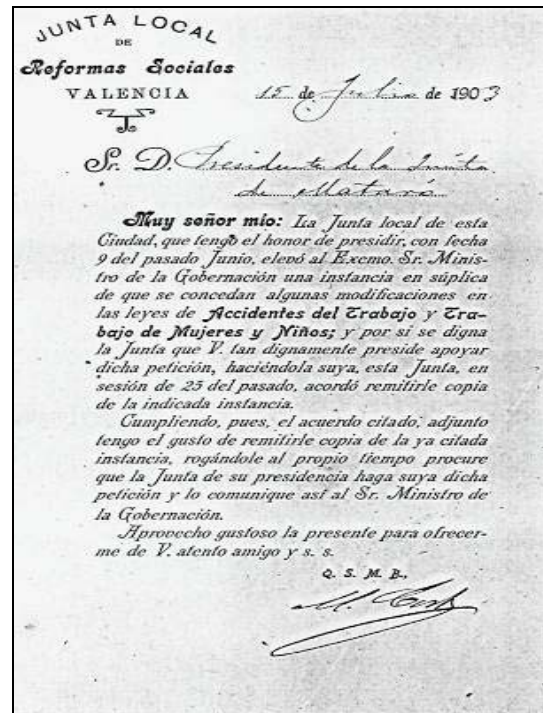 JUNTA LOCAL
DE
Reformas Sociales
VALENCIA
15 de Julio de 1903
Sr. D. Presidente de la Junta
de Mataró
Muy señor mío: La Junta local de esta
Ciudad, que tengo el honor de presidir, con fecha
9 del pasado Junio, elevó al Excmo. Sr. Minis-
tro de la Gobernación una instancia en súplica
de que se concedan algunas modificaciones en
las leyes de Accidentes del Trabajo y Tra-
bajo de Mujeres y Niños; y por si se digna
la Junta que V. tan dignamente preside apoyar
dicha petición, haciéndola suya, esta Junta, en
sesión de 25 del pasado, acordó remitirle copia
de la indicada instancia.
Cumpliendo, pues, el acuerdo citado, adjunto
tengo el gusto de remitirle copia de la ya citada
instancia, rogándole al propio tiempo procure
que la Junta de su presidencia haga suya dicha
petición y lo comunique así al Sr. Ministro de
la Gobernación.
Aprovecho gustoso la presente para ofrecer-
me de V. atento amigo y s. s.
Q. S. M. B.,
M.